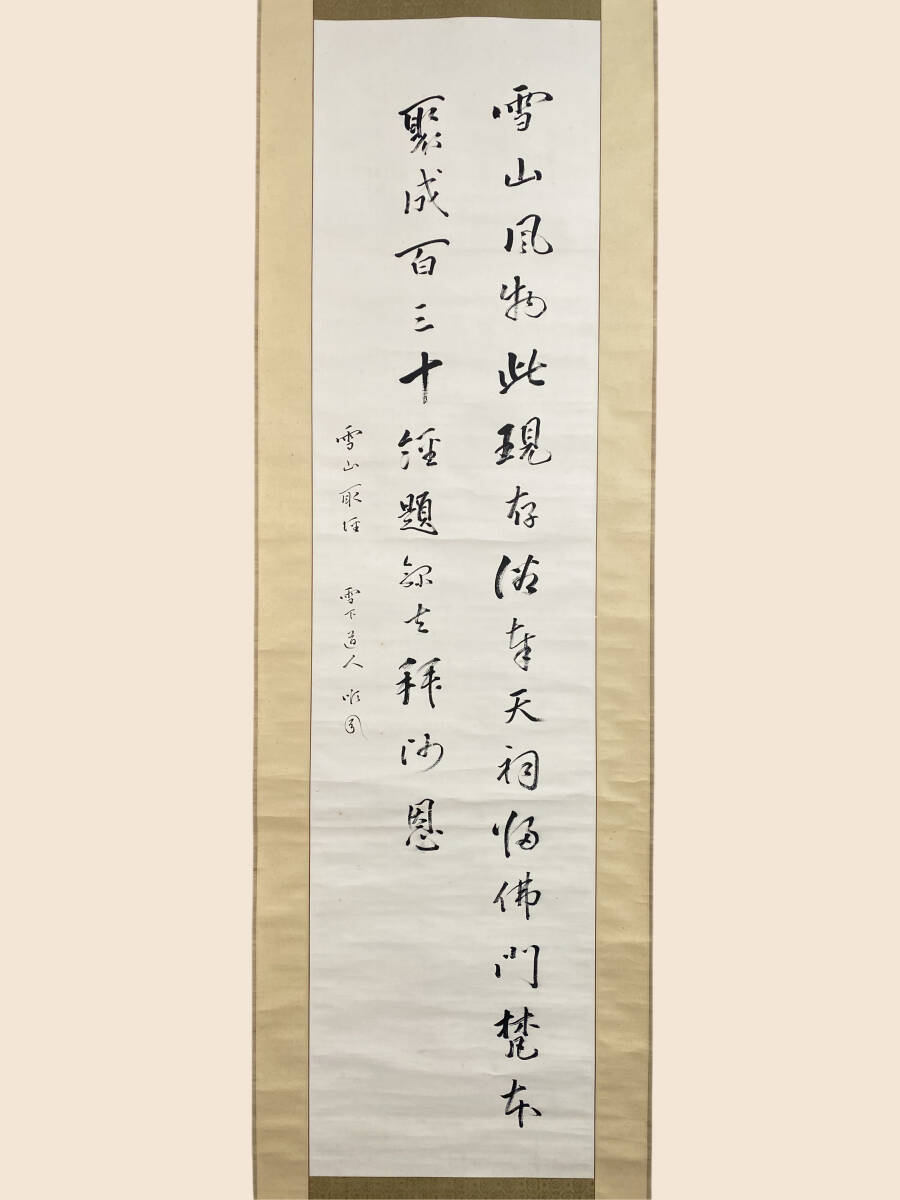 雪山風物此現存俗奉天祠帰佛門梵本
聚成百三十經題録去拜恩
雪山取經 雪下道人